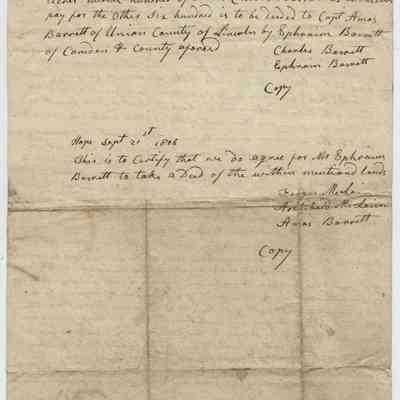 pay for the Other Six hundred is to be Deeded to Capt Amos
Barrett of Union County of Lincoln by Ephraim Barrett
of Camden & County afores.d
Charles Barrett
Ephraim Barrett
Copy
Hope Sept 21st 1806
This is to Certify that we do agree for Mr Ephraim
Barrett to take a Deed of the within mentiond lands
Amos Barrett
Copy